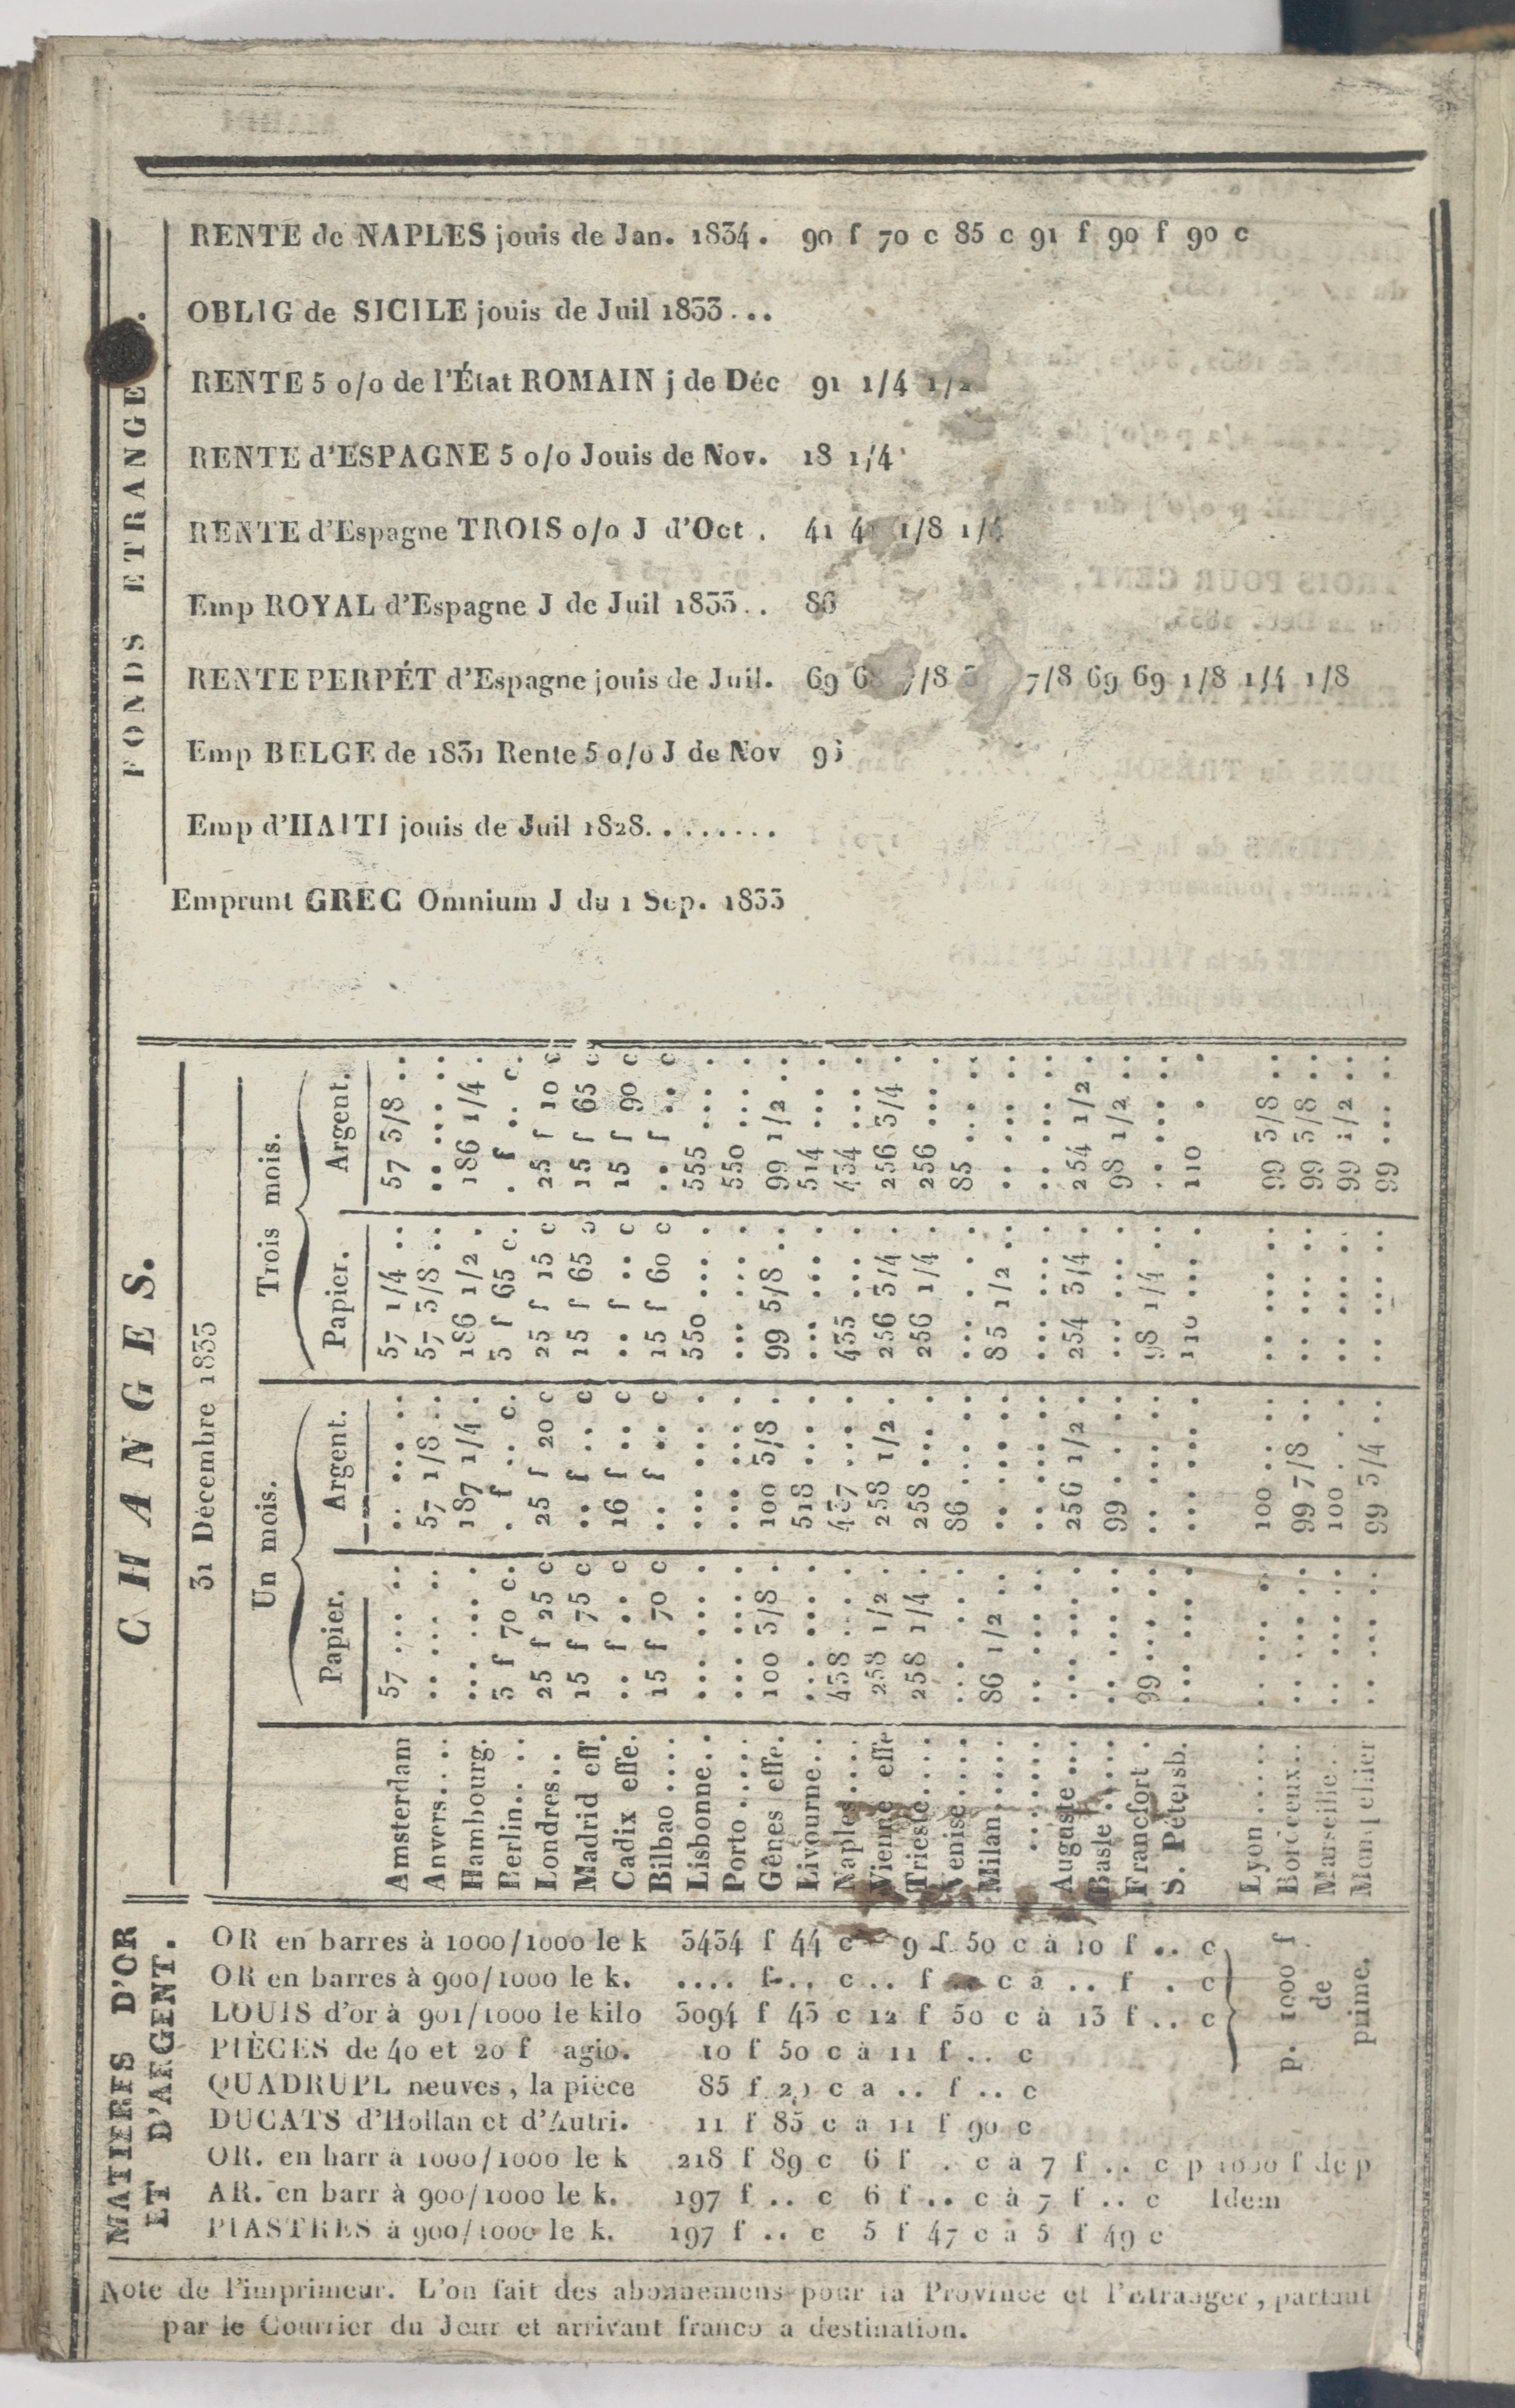 FONDS ETRANGE
RENTE de NAPLES jouis de Jan. 1834. 90 f 70 c 85 c 91 f 90 f 90 c
OBLIG de SICILE jouis de Juil 1833...
RENTE 5 o/o de l'État ROMAIN j de Déc 91 1/4 1/2
RENTE d'ESPAGNE 5 o/o Jouis de Nov. 18 1/4
RENTE d'Espagne TROIS o/o J d'Oct. 41 1/8 1/4
Emp ROYAL d'Espagne J de Juil 1833.. 86
RENTE PERPÉT d'Espagne jouis de Juil. 69 7/8 7/8 69 69 1/8 1/4 1/8
Emp BELGE de 1831 Rente 5 o/o J de Nov
Emp d'HAITI jouis de Juil 1828........
Emprunt GREC Omnium J du 1 Sep. 1833
CHANGES.
31 Décembre 1833
Un mois. Trois mois.
Papier. Argent. Papier. Argent.
Amsterdam 57 .... .. .. .... .. 57 1/4 .. 57 3/8 ..
Anvers.... .. .... .. 57 1/8 .. 57 3/8 .. .. .... ..
Hambourg. ... ... . 187 1/4 . 186 1/2 . 186 1/4 .
Berlin.... 3 f 70 c. . f .. c. 3 f 65 c. . f .. c.
Londres... 25 f 25 c 25 f 20 c 25 f 15 c 25 f 10 c
Madrid eff. 15 f 75 c .. f .. c 15 f 65 c 15 f 65 c
Cadix effe. .. f .. c 16 f .. c .. f .. c 15 f 90 c
Bilbao .... 15 f 70 c .. f .. c 15 f 60 c .. f .. c
Lisbonne... ... .... . ... .... . 550 .... . 555 ... .
Porto ..... ... .... . ... .... . ... .... . 550 ... .
Gênes effe. 100 3/8 . 100 3/8 . 99 5/8 .. 99 1/2 ..
Livourne... ... .... . 518 ... . ... .... . 514 ... .
Naples..... 438 ... . 437 ... . 435 ... . 434 ... .
Vienne effe 258 1/2 . 258 1/2 . 256 3/4 . 256 3/4 .
Trieste.... 258 1/4 . 258 ... . 256 1/4 . 256 ... .
Venise..... ... .. . 86 .... .. ... .. . 85 .. . .
Milan...... 86 1/2 .. .. .... .. 85 1/2 .. .. ... ..
Auguste ... ... ... . 256 1/2 . 254 3/4 . 254 1/2 .
Basle ..... .. .... .. 99 . .. . ... ... . 98 1/2 ..
Francfort . 99 .... .. .. .... .. 98 1/4 .. .. ... ..
S. Pétersb. ... .... . ... .... . 110 ... . 110 . .
Lyon...... .. .... .. 100 .. .. .. .... .. 99 3/8 ..
Bordeeux... .. .... .. 99 7/8 .. .. .... .. 99 3/8 ..
Marseille.. .. .... .. 100 . . .. .... .. 99 1/2 ..
.. .... .. 99 3/4 .. .. .... .. 99 ... ..
MATIERES D'OR
ET D'ARGENT.
OR en barres à 1000/1000 le k 3434 f 44 c 9 f 50 c à 10 f .. c
OR en barres à 900/1000 le k. .... f .. c .. f .. c à .. f . c
LOUIS d'or à 901/1000 le kilo 3094 f 43 c 12 f 50 c à 13 f .. c
p. 1000 f
de
prime.
PIÈCES de 40 et 20 f agio. 10 f 50 c à 11 f .. c
QUADRUPL neuves, la pièce 85 f c a .. f .. c
DUCATS d'Hollan et d'Autri. 11 f 85 c a 11 f 90 c
OR. en barr à 1000/1000 le k 218 f 89 c 6 f . c à 7 f .. c p 1000 f de p
AR. en barr à 900/1000 le k. 197 f .. c 6 f .. c à 7 f .. c Idem
PIASTRES à 900/1000 le k. 197 f .. c 5 f 47 c à 5 f 49 c
Note de l'imprimeur. L'on fait des abonnemens pour la Province et l'Etranger, partant
par le Courrier du Jour et arrivant franco a destination.